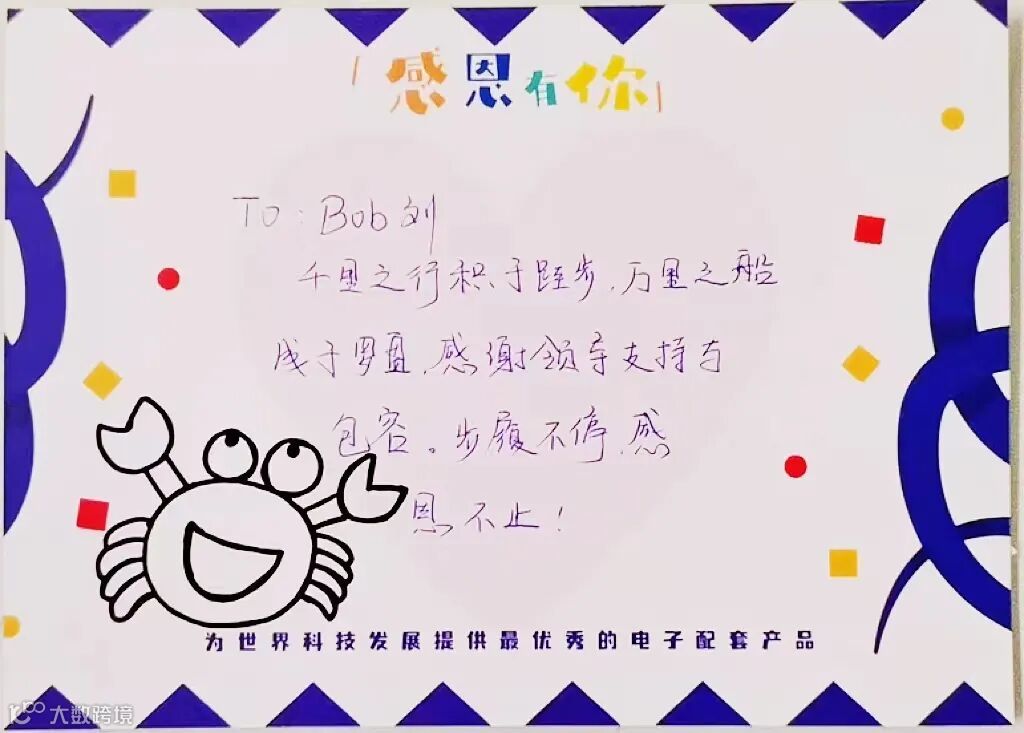 「感恩有你」
TO:Bob刘
千里之行积于跬步,万里之船
成于罗盘,感谢领导支持与
包容。步履不停,感
恩不止!
为世界科技发展提供最优秀的电子配套产品
大数跨境